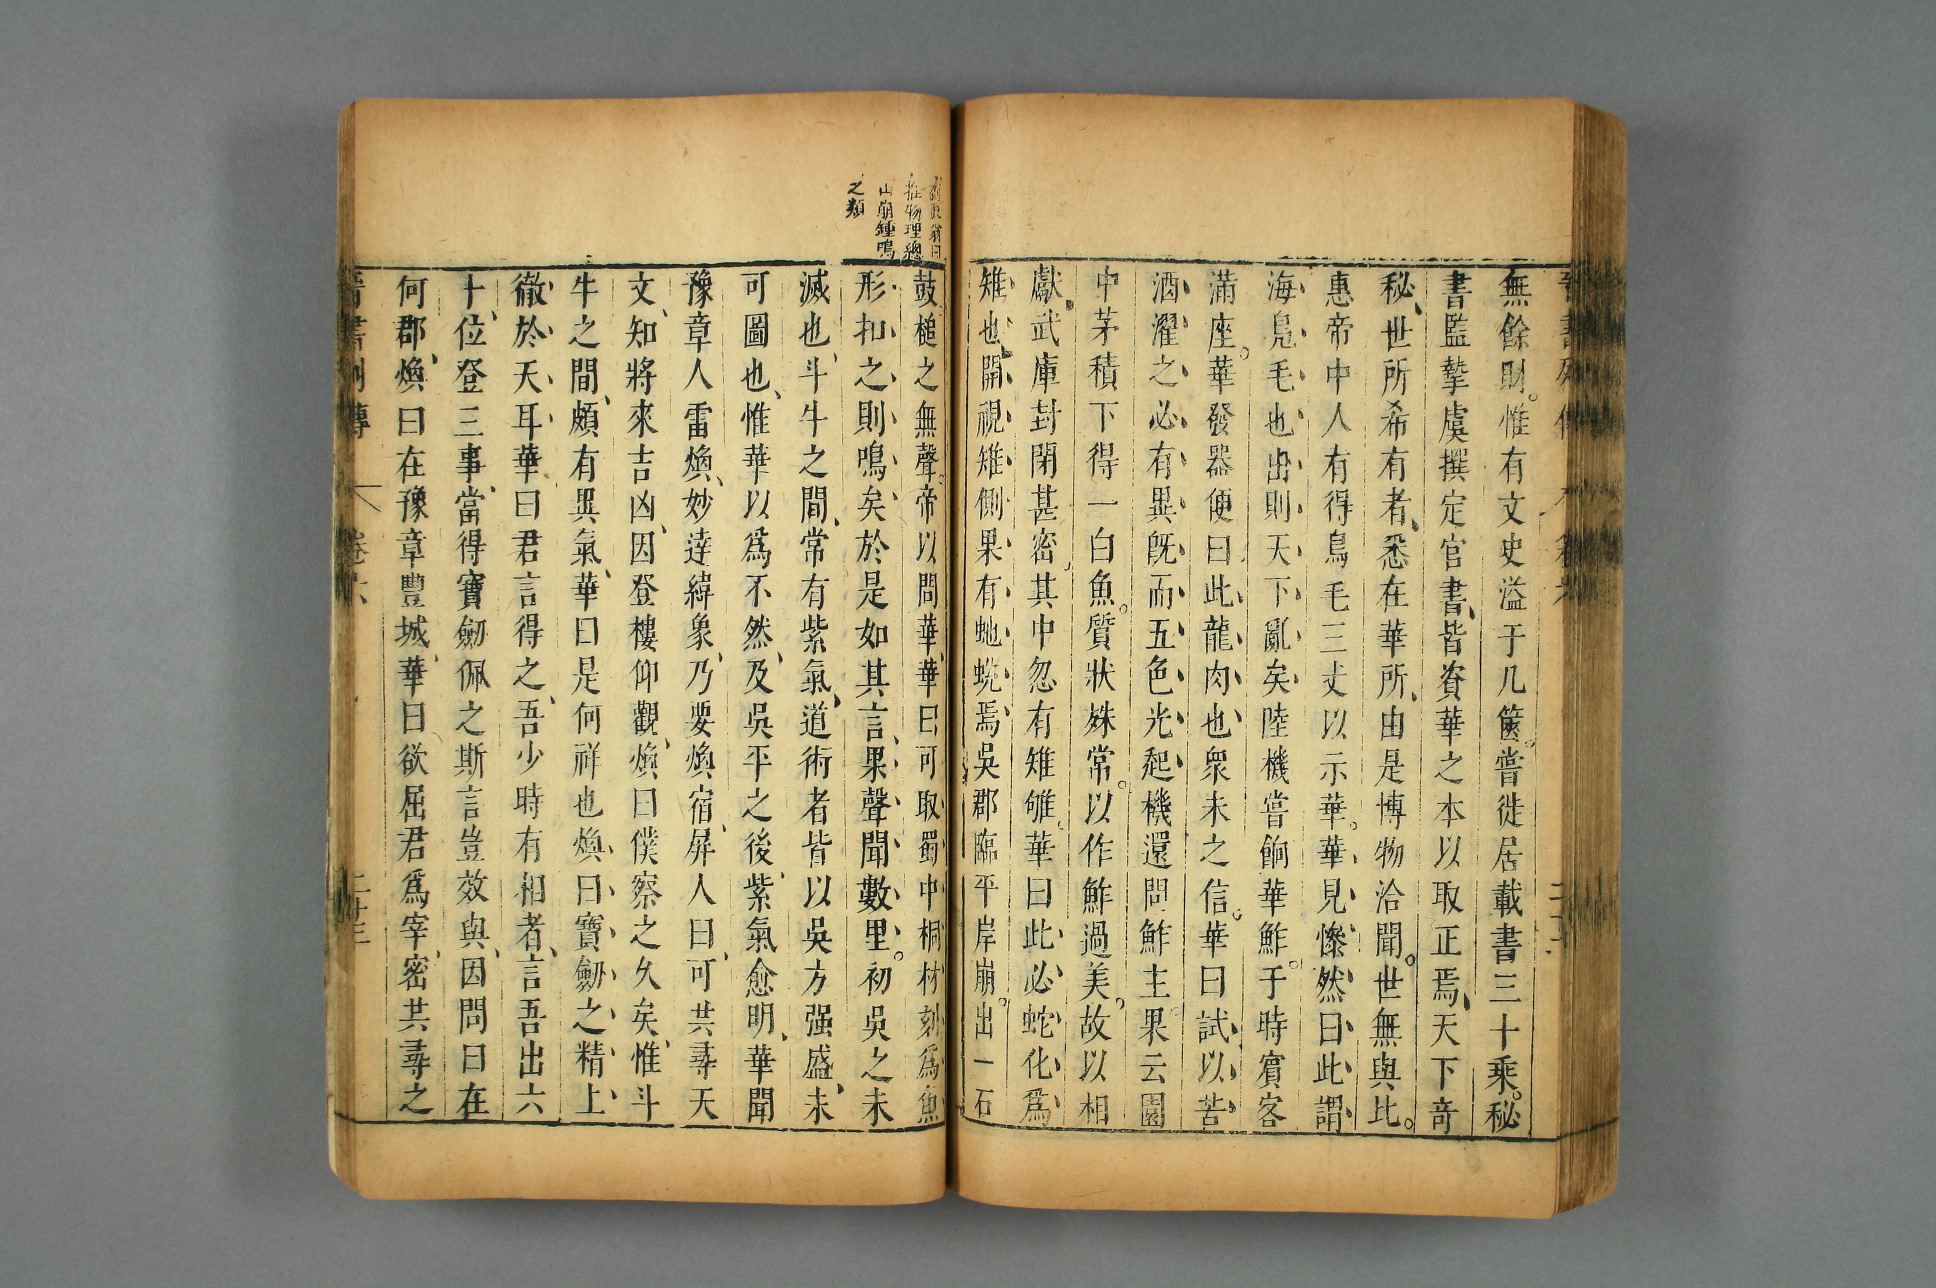 無餘財。惟有文史溢于几篋。嘗徙居載書三十乘。秘
書監摯虞撰定官書、皆資華之本以取正焉、天下竒
秘、世所希有者、悉在華所、由是博物洽聞。世無與比。
惠帝中人有得鳥毛三丈以示華。華見慘然曰此謂
海鳧毛也出則天下亂矣陸機嘗餉華鮓。于時賓客
滿座。華發器便曰此龍肉也衆未之信。華曰試以苦
酒濯之必有異旣而五色光起機還問鮓主果云園
中茅積下得一白魚。質狀殊常。以作鮓過美。故以相
獻。武庫封閉甚密其中忽有雉雊。華曰此必蛇化爲
雉也開視雉側果有虵蛻焉吳郡臨平岸崩。出一石
鼓、槌之無聲。帝以問華、華曰可取蜀中桐材刻爲魚
形扣之則鳴矣於是如其言、果聲聞數里。初吳之未
滅也、斗牛之間、常有紫氣、道術者皆以吳方强盛、未
可圖也、惟華以爲不然、及吳平之後、紫氣愈明、華聞
豫章人雷煥、妙達緯象、乃要煥宿、屏人曰、可共尋天
文、知將來吉凶、因登樓仰觀、煥曰僕察之久矣、惟斗
牛之間、頗有異氣、華曰是何祥也煥曰寶劒之精上
徹於天耳華曰君言得之、吾少時有相者、言吾出六
十、位登三事、當得寶劒佩之斯言豈效與、因問曰在
何郡、煥曰在豫章豐城、華曰欲屈君爲宰、密共尋之
翁曰
推物理總
山崩鍾鳴
之類
晉書列傳 卷六 二十三